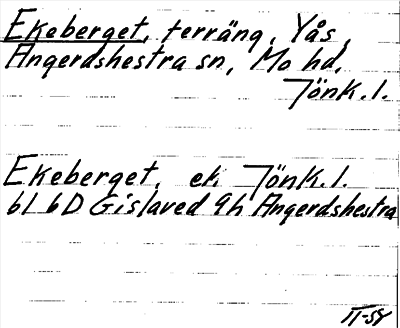 Ekeberget, terräng, Yås,
Angerdshestra sn, Mo hd,
Jönk. l.
Ekeberget, ek Jönk. l.
bl 6D Gislaved 9h Angerdshestra
II-58